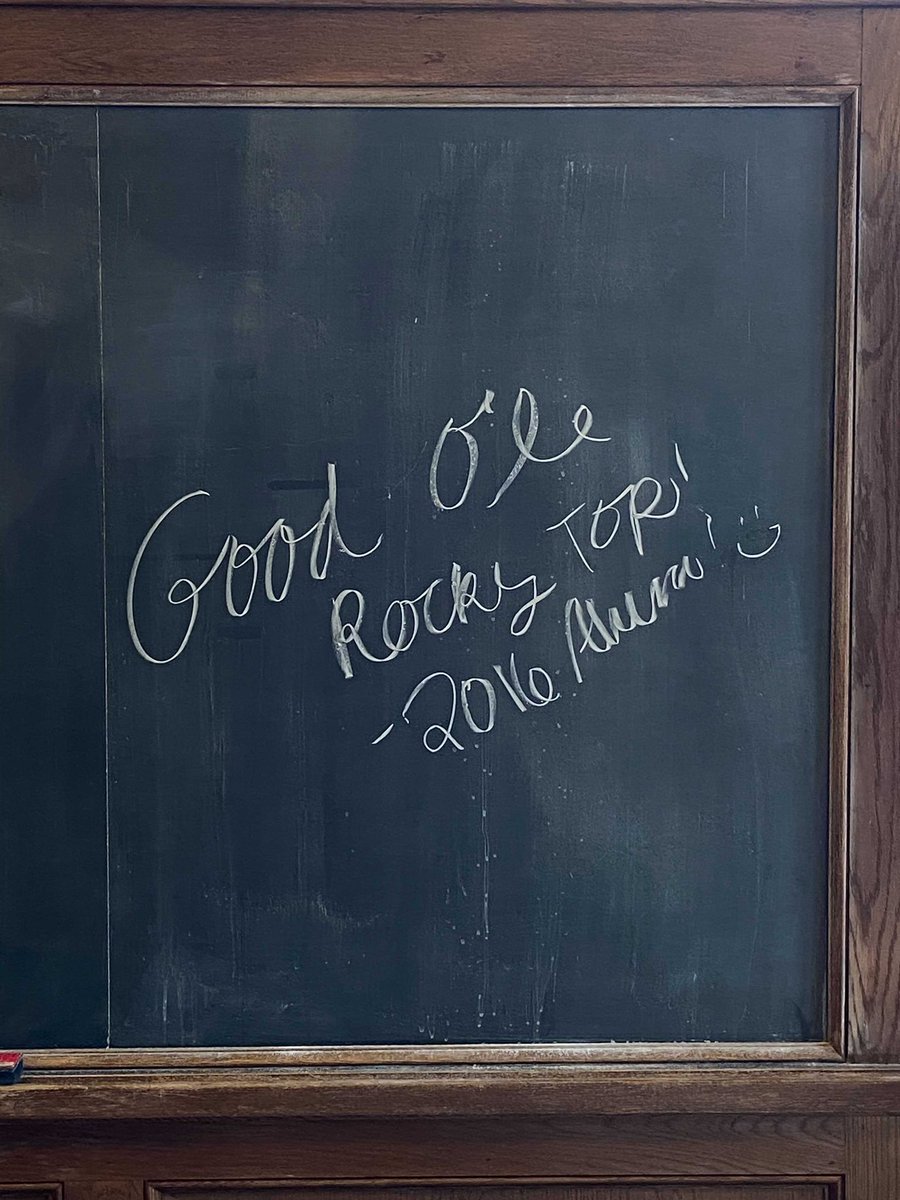 Good O'le
Rocky TOP!
-2016 Alum! :)